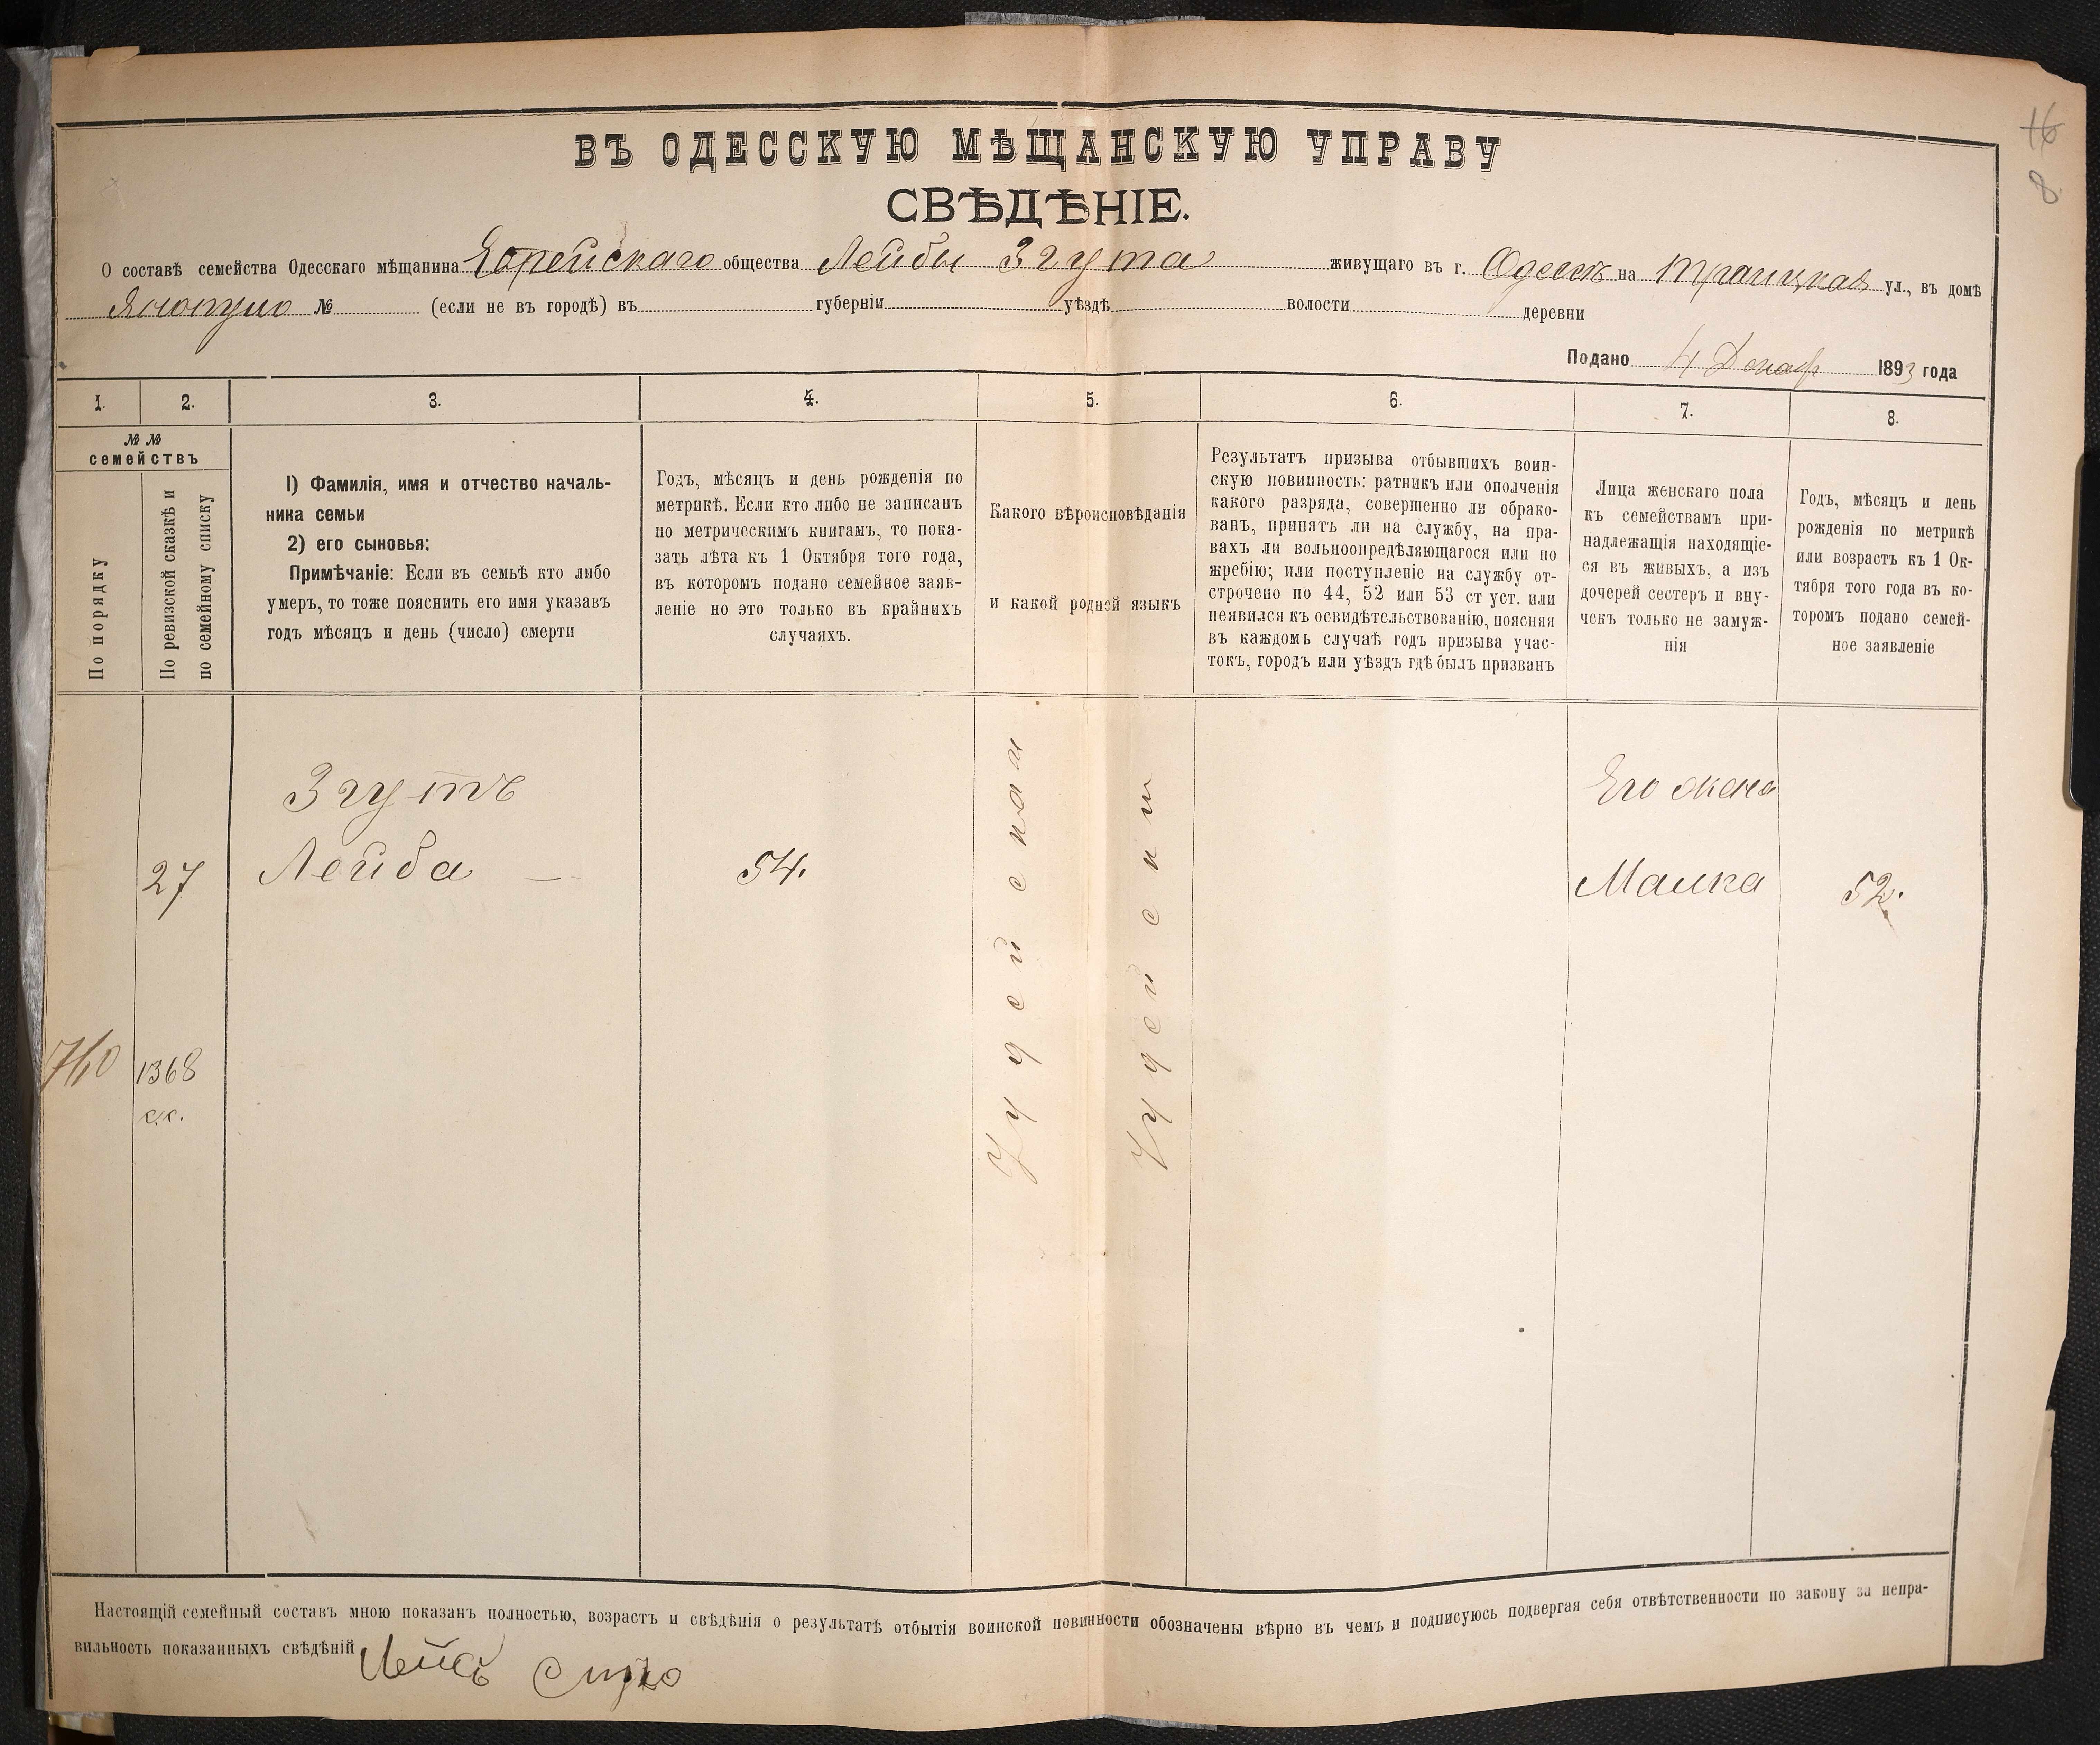 16
8
ВЪ ОДЕССКУЮ МѢЩАНСКУЮ УПРАВУ
СВѢДѢНІЕ.
О составѣ семейства Одесскаго мѣщанина Еврейскаго общества Лейбы Згута живущаго въ г. Одессѣ на Троицкая ул., въ домѣ
№ (если не въ городѣ) въ губерніи уѣздѣ волости деревни
Подано 4 Декаб 1893 года
1. 2. 3. 4. 5. 6. 7. 8.
№ № семействъ
По порядку
По ревизской сказкѣ и
по семейному списку
1) Фамилія, имя и отчество началь-
ника семьи
2) его сыновья:
Примѣчаніе: Если въ семьѣ кто либо
умеръ, то тоже пояснить его имя указавъ
годъ мѣсяцъ и день (число) смерти
Годъ, мѣсяцъ и день рожденія по
метрикѣ. Если кто либо не записанъ
по метрическимъ книгамъ, то пока-
зать лѣта къ 1 Октября того года,
въ которомъ подано семейное заяв-
леніе но это только въ крайнихъ
случаяхъ.
Какого вѣроисповѣданія
и какой родной языкъ
Результатъ призыва отбывшихъ воин-
скую повинность: ратникъ или ополченія
какого разряда, совершенно ли обрако-
ванъ, принятъ ли на службу, на пра-
вахъ ли вольноопредѣляющагося или по
жребію; или поступленіе на службу от-
строчено по 44, 52 или 53 ст уст. или
неявился къ освидѣтельствованію, поясняя
въ каждомъ случаѣ годъ призыва учас-
токъ, городъ или уѣздъ гдѣ былъ призванъ
Лица женскаго пола
къ семействамъ при-
надлежащія находящіе-
ся въ живыхъ, а изъ
дочерей сестеръ и вну-
чекъ только не замуж-
нія
Годъ, мѣсяцъ и день
рожденія по метрикѣ
или возрастъ къ 1 Ок-
тября того года въ ко-
торомъ подано семей-
ное заявленіе
Згутъ
Его жена
27 Лейба — 54. Малка 52.
Іудейская
Іудейски
760 1368
с.с.
Настоящій семейный составъ мною показанъ полностью, возрастъ и свѣдѣнія о результатѣ отбытія воинской повинности обозначены вѣрно въ чемъ и подписуюсь подвергая себя отвѣтственности по закону за непра-
вильность показанныхъ свѣдѣній